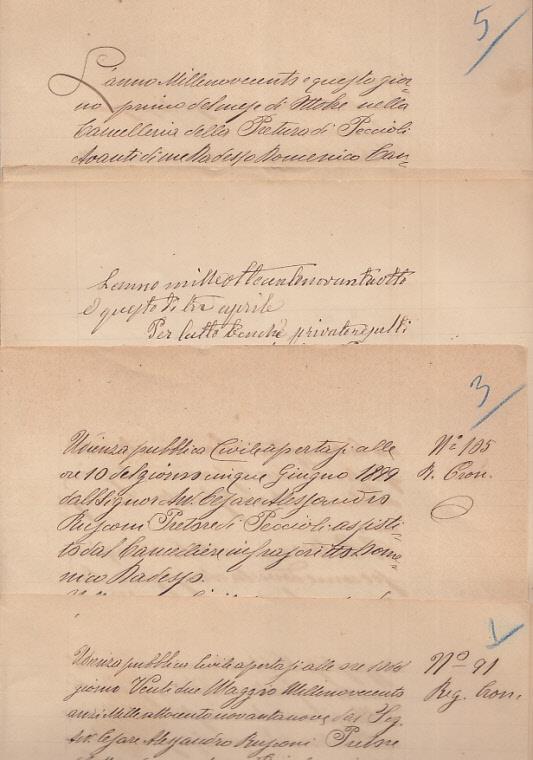 5/
L'anno Millenovecento e questo gior=
no primo del mese di Ottobre nella
Cancelleria della Pretura di Peccioli
Avanti di me Radesso Domenico Can=
L'anno milleottocentonovantotto
e questo dì tre aprile
Per l'atto benché privato
3/
Udienza pubblica Civile apertasi alle
ore 10 del giorno cinque Giugno 1899
dall Signor Avv. Cesare Alessandro
Rusconi Pretore di Peccioli assisti=
to dal Cancelliere infrascritto Dome=
nico Radesso.
N° 105
R. Cron.
1/
Udienza pubblica Civile apertasi alle ore
giorno Venti due Maggio Millenovecento
anzi Milleottocentonovantanove dal Sig.
Avv. Cesare Alessandro Rusconi Pretore
N° 91
Reg. Cron.